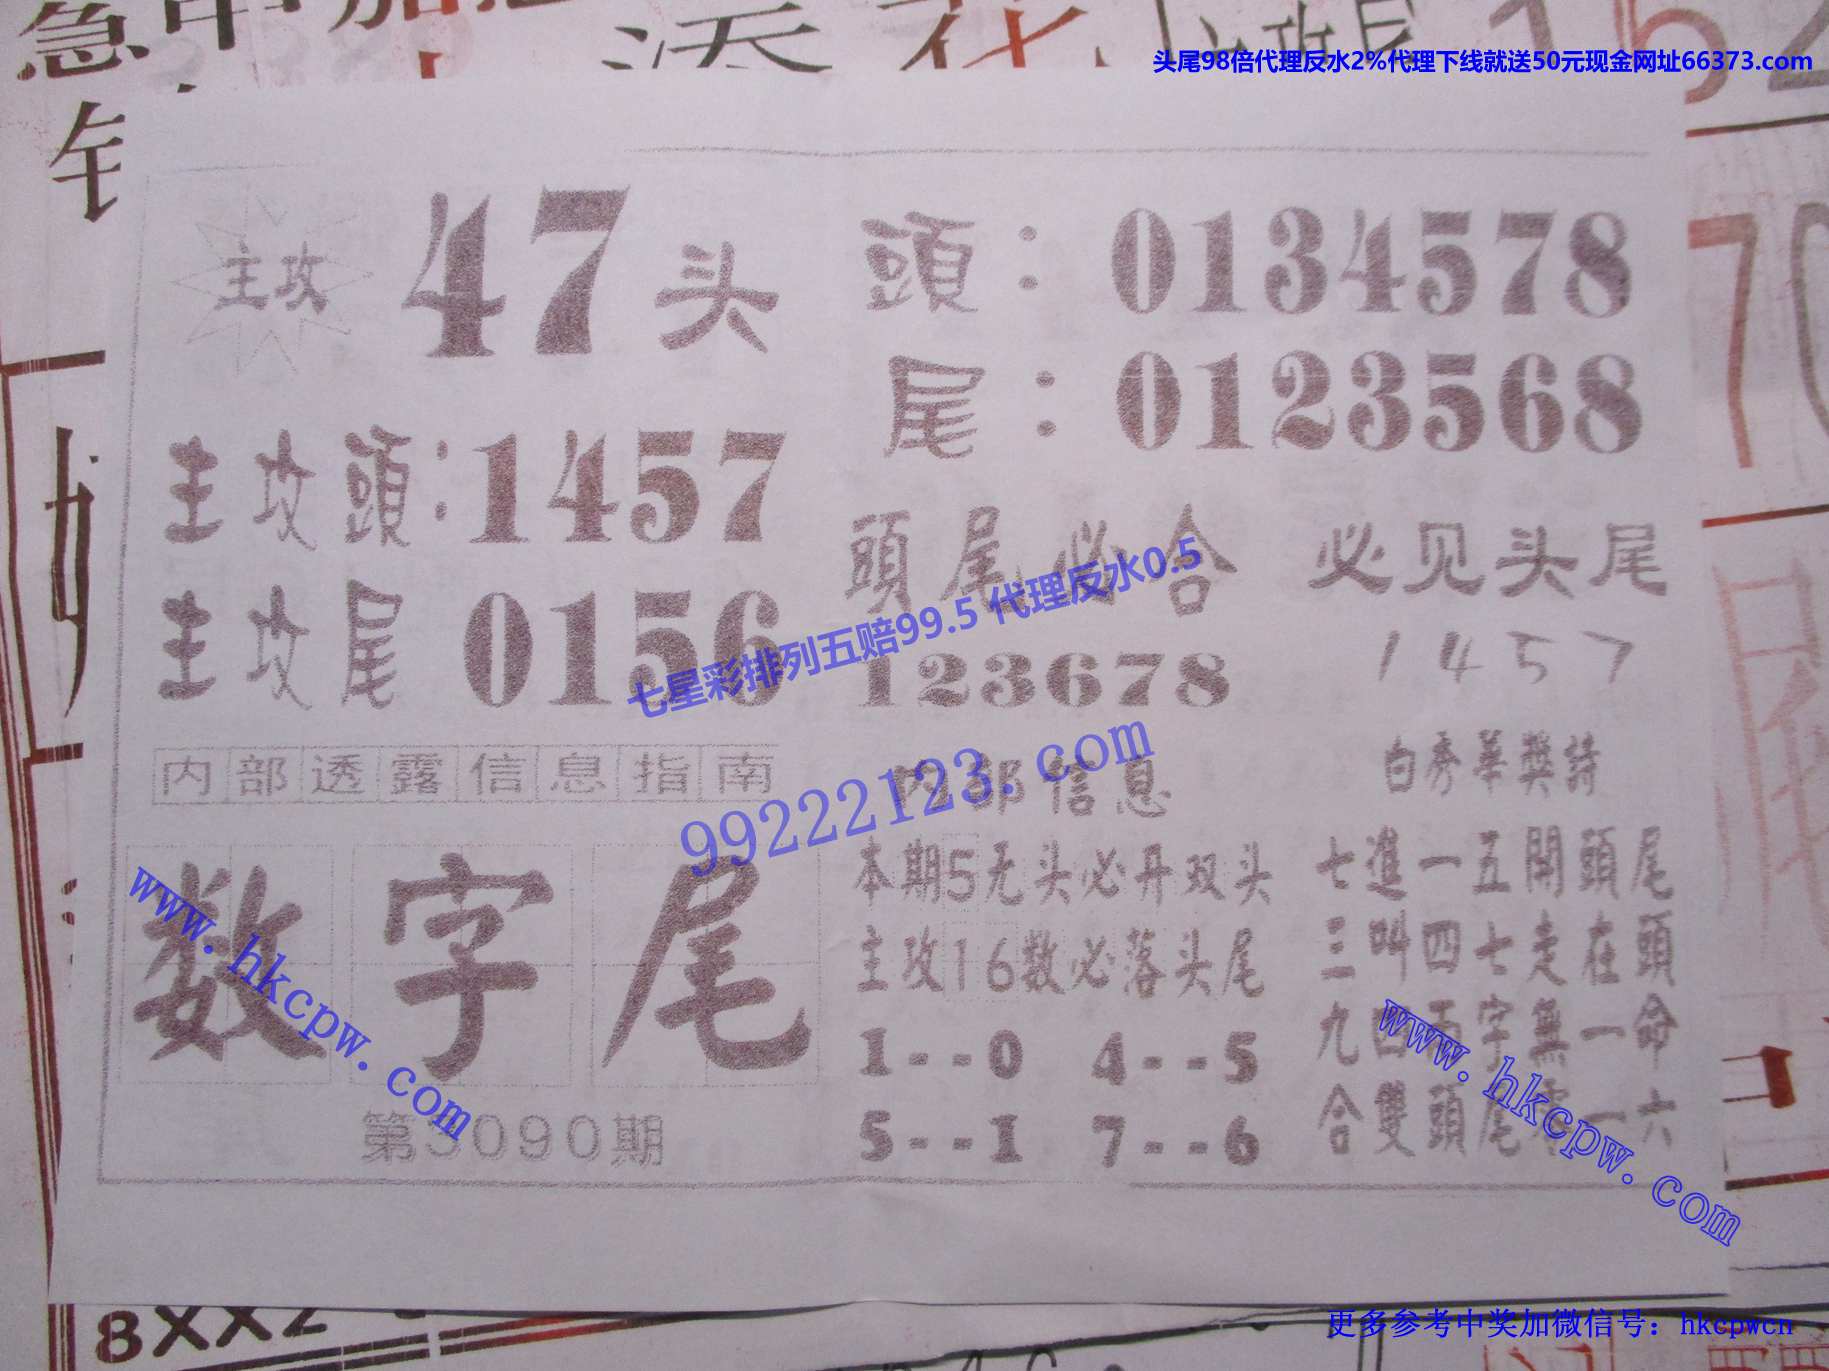 头尾98倍代理反水2%代理下线就送50元现金网址66373.com
主攻 47头
頭：0134578
尾：0123568
主攻頭：1457
主攻尾 0156
頭尾必合
123678
必见头尾
1457
七星彩排列五赔99.5 代理反水0.5
99222123.com
内部透露信息指南
数字尾
第3090期
内部信息
本期5无头必开双头
主攻16数必落头尾
1--0 4--5
5--1 7--6
白秀華獎詩
七進一五開頭尾
三叫四七走在頭
九四兩字無一命
合雙頭尾 一六
www.hkcpw.com
www.hkcpw.com
8XX2
更多参考中奖加微信号：hkcpwcn